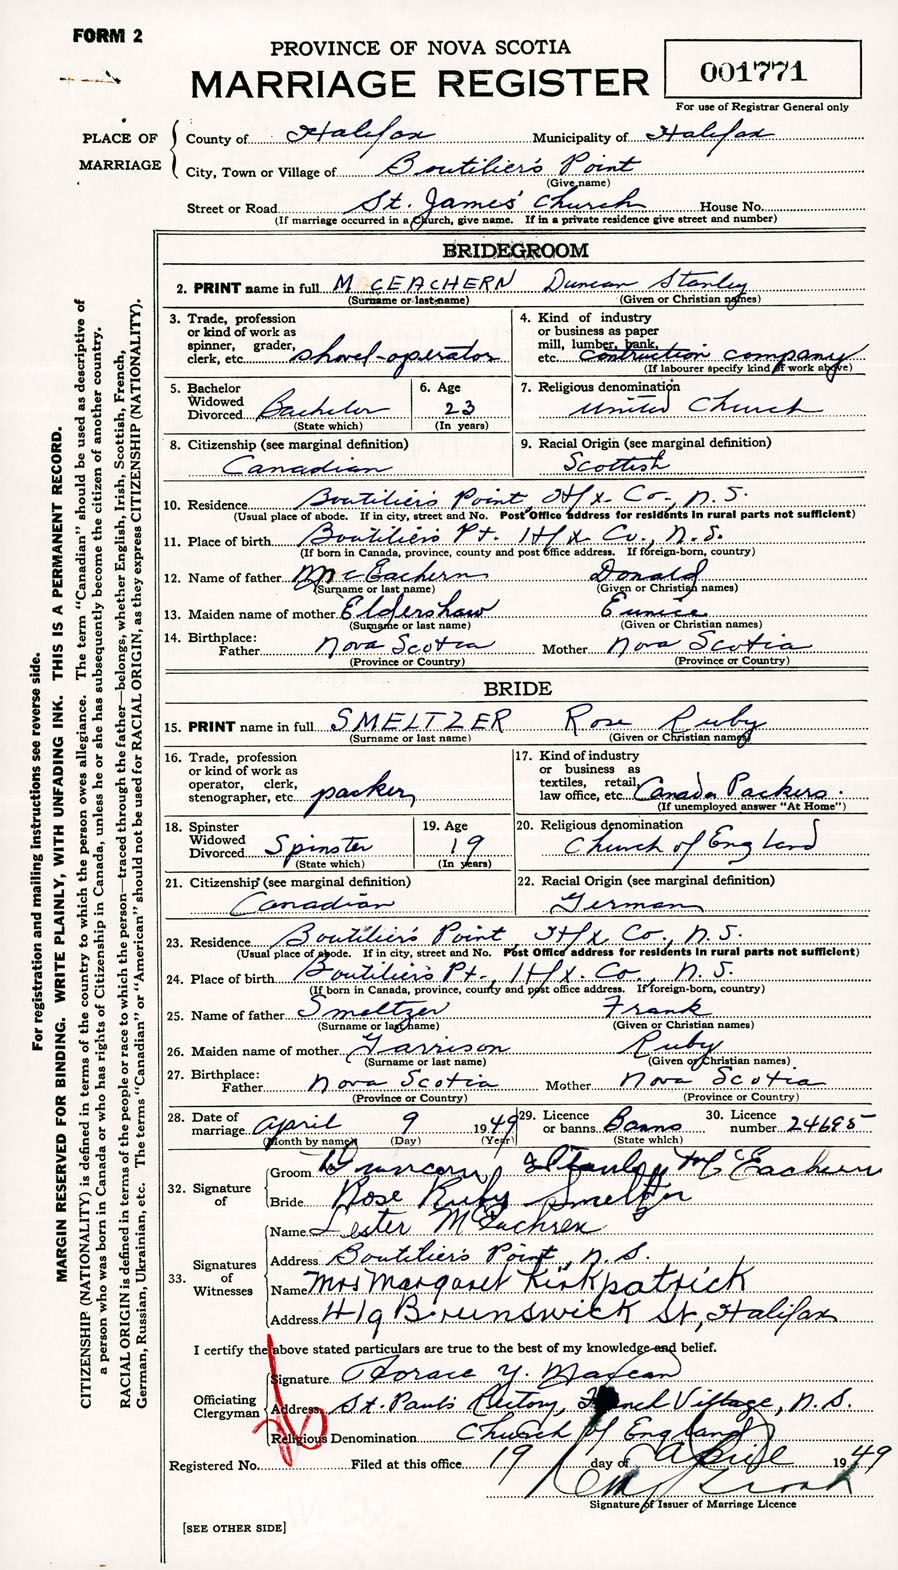 FORM 2
PROVINCE OF NOVA SCOTIA
MARRIAGE REGISTER
001771
For use of Registrar General only
PLACE OF MARRIAGE
County of Halifax Municipality of Halifax
City, Town or Village of Boutilier's Point
(Give name)
Street or Road St. James' Church House No.
(If marriage occurred in a Church, give name. If in a private residence give street and number)
BRIDEGROOM
2. PRINT name in full McEACHERN Duncan Stanley
(Surname or last name) (Given or Christian names)
3. Trade, profession or kind of work as spinner, grader, clerk, etc. shovel-operator
4. Kind of industry or business as paper mill, lumber, bank, etc. contruction company
(If labourer specify kind of work above)
5. Bachelor Widowed Divorced Bachelor
(State which)
6. Age 23
(In years)
7. Religious denomination United Church
8. Citizenship (see marginal definition) Canadian
9. Racial Origin (see marginal definition) Scottish
10. Residence Boutilier's Point, Hfx. Co., N.S.
(Usual place of abode. If in city, street and No. Post Office address for residents in rural parts not sufficient)
11. Place of birth Boutilier's Pt. Hfx Co., N.S.
(If born in Canada, province, county and post office address. If foreign-born, country)
12. Name of father McEachern Donald
(Surname or last name) (Given or Christian names)
13. Maiden name of mother Eldershaw Eunice
(Surname or last name) (Given or Christian names)
14. Birthplace: Father Nova Scotia Mother Nova Scotia
(Province or Country) (Province or Country)
BRIDE
15. PRINT name in full SMELTZER Rose Ruby
(Surname or last name) (Given or Christian names)
16. Trade, profession or kind of work as operator, clerk, stenographer, etc. packer
17. Kind of industry or business as textiles, retail, law office, etc. Canada Packers.
(If unemployed answer "At Home")
18. Spinster Widowed Divorced Spinster
(State which)
19. Age 19
(In years)
20. Religious denomination Church of England
21. Citizenship (see marginal definition) Canadian
22. Racial Origin (see marginal definition) German
23. Residence Boutilier's Point Hfx Co., N.S.
(Usual place of abode. If in city, street and No. Post Office address for residents in rural parts not sufficient)
24. Place of birth Boutilier's Pt., Hfx. Co., N.S.
(If born in Canada, province, county and post office address. If foreign-born, country)
25. Name of father Smeltzer Frank
(Surname or last name) (Given or Christian names)
26. Maiden name of mother Garrison Ruby
(Surname or last name) (Given or Christian names)
27. Birthplace: Father Nova Scotia Mother Nova Scotia
(Province or Country) (Province or Country)
28. Date of marriage April 9 1949
(Month by name) (Day) (Year)
29. Licence or banns Banns
(State which)
30. Licence number 24695
32. Signature of
Groom Duncan Stanley McEachern
Bride Rose Ruby Smeltzer
33. Signatures of Witnesses
Name Lester McEachren
Address Boutilier's Point, N.S.
Name Mrs Margaret Kirkpatrick
Address 419 Brunswick St, Halifax
I certify the above stated particulars are true to the best of my knowledge and belief.
Officiating Clergyman
Signature Horace Y.
Address St. Paul's Rectory, French Village, N.S.
Religious Denomination Church of England
Registered No. Filed at this office 19 day of April 1949
Signature of Issuer of Marriage Licence
[SEE OTHER SIDE]
For registration and mailing instructions see reverse side.
MARGIN RESERVED FOR BINDING. WRITE PLAINLY, WITH UNFADING INK. THIS IS A PERMANENT RECORD.
CITIZENSHIP (NATIONALITY) is defined in terms of the country to which the person owes allegiance. The term "Canadian" should be used as descriptive of
a person who was born in Canada or who has rights of Citizenship in Canada, unless he or she has subsequently become the citizen of another country.
RACIAL ORIGIN is defined in terms of the people or race to which the person—traced through the father—belongs, whether English, Irish, Scottish, French,
German, Russian, Ukrainian, etc. The terms "Canadian" or "American" should not be used for RACIAL ORIGIN, as they express CITIZENSHIP (NATIONALITY).